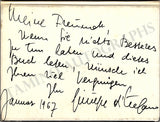 Meine Freunde
Wenn Sie nichts Besseres
zu tun haben und dieses
Buch lesen, wünsche ich
Ihnen viel Vergnügen
Ihr
Januar 1967 Giuseppe di Stefano